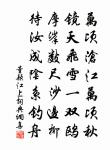 萬頃滄江萬頃秋
鏡天飛雪一雙鷗
摩挲數尺沙邊柳
待汝成陰系釣舟
董穎江上詞典網書